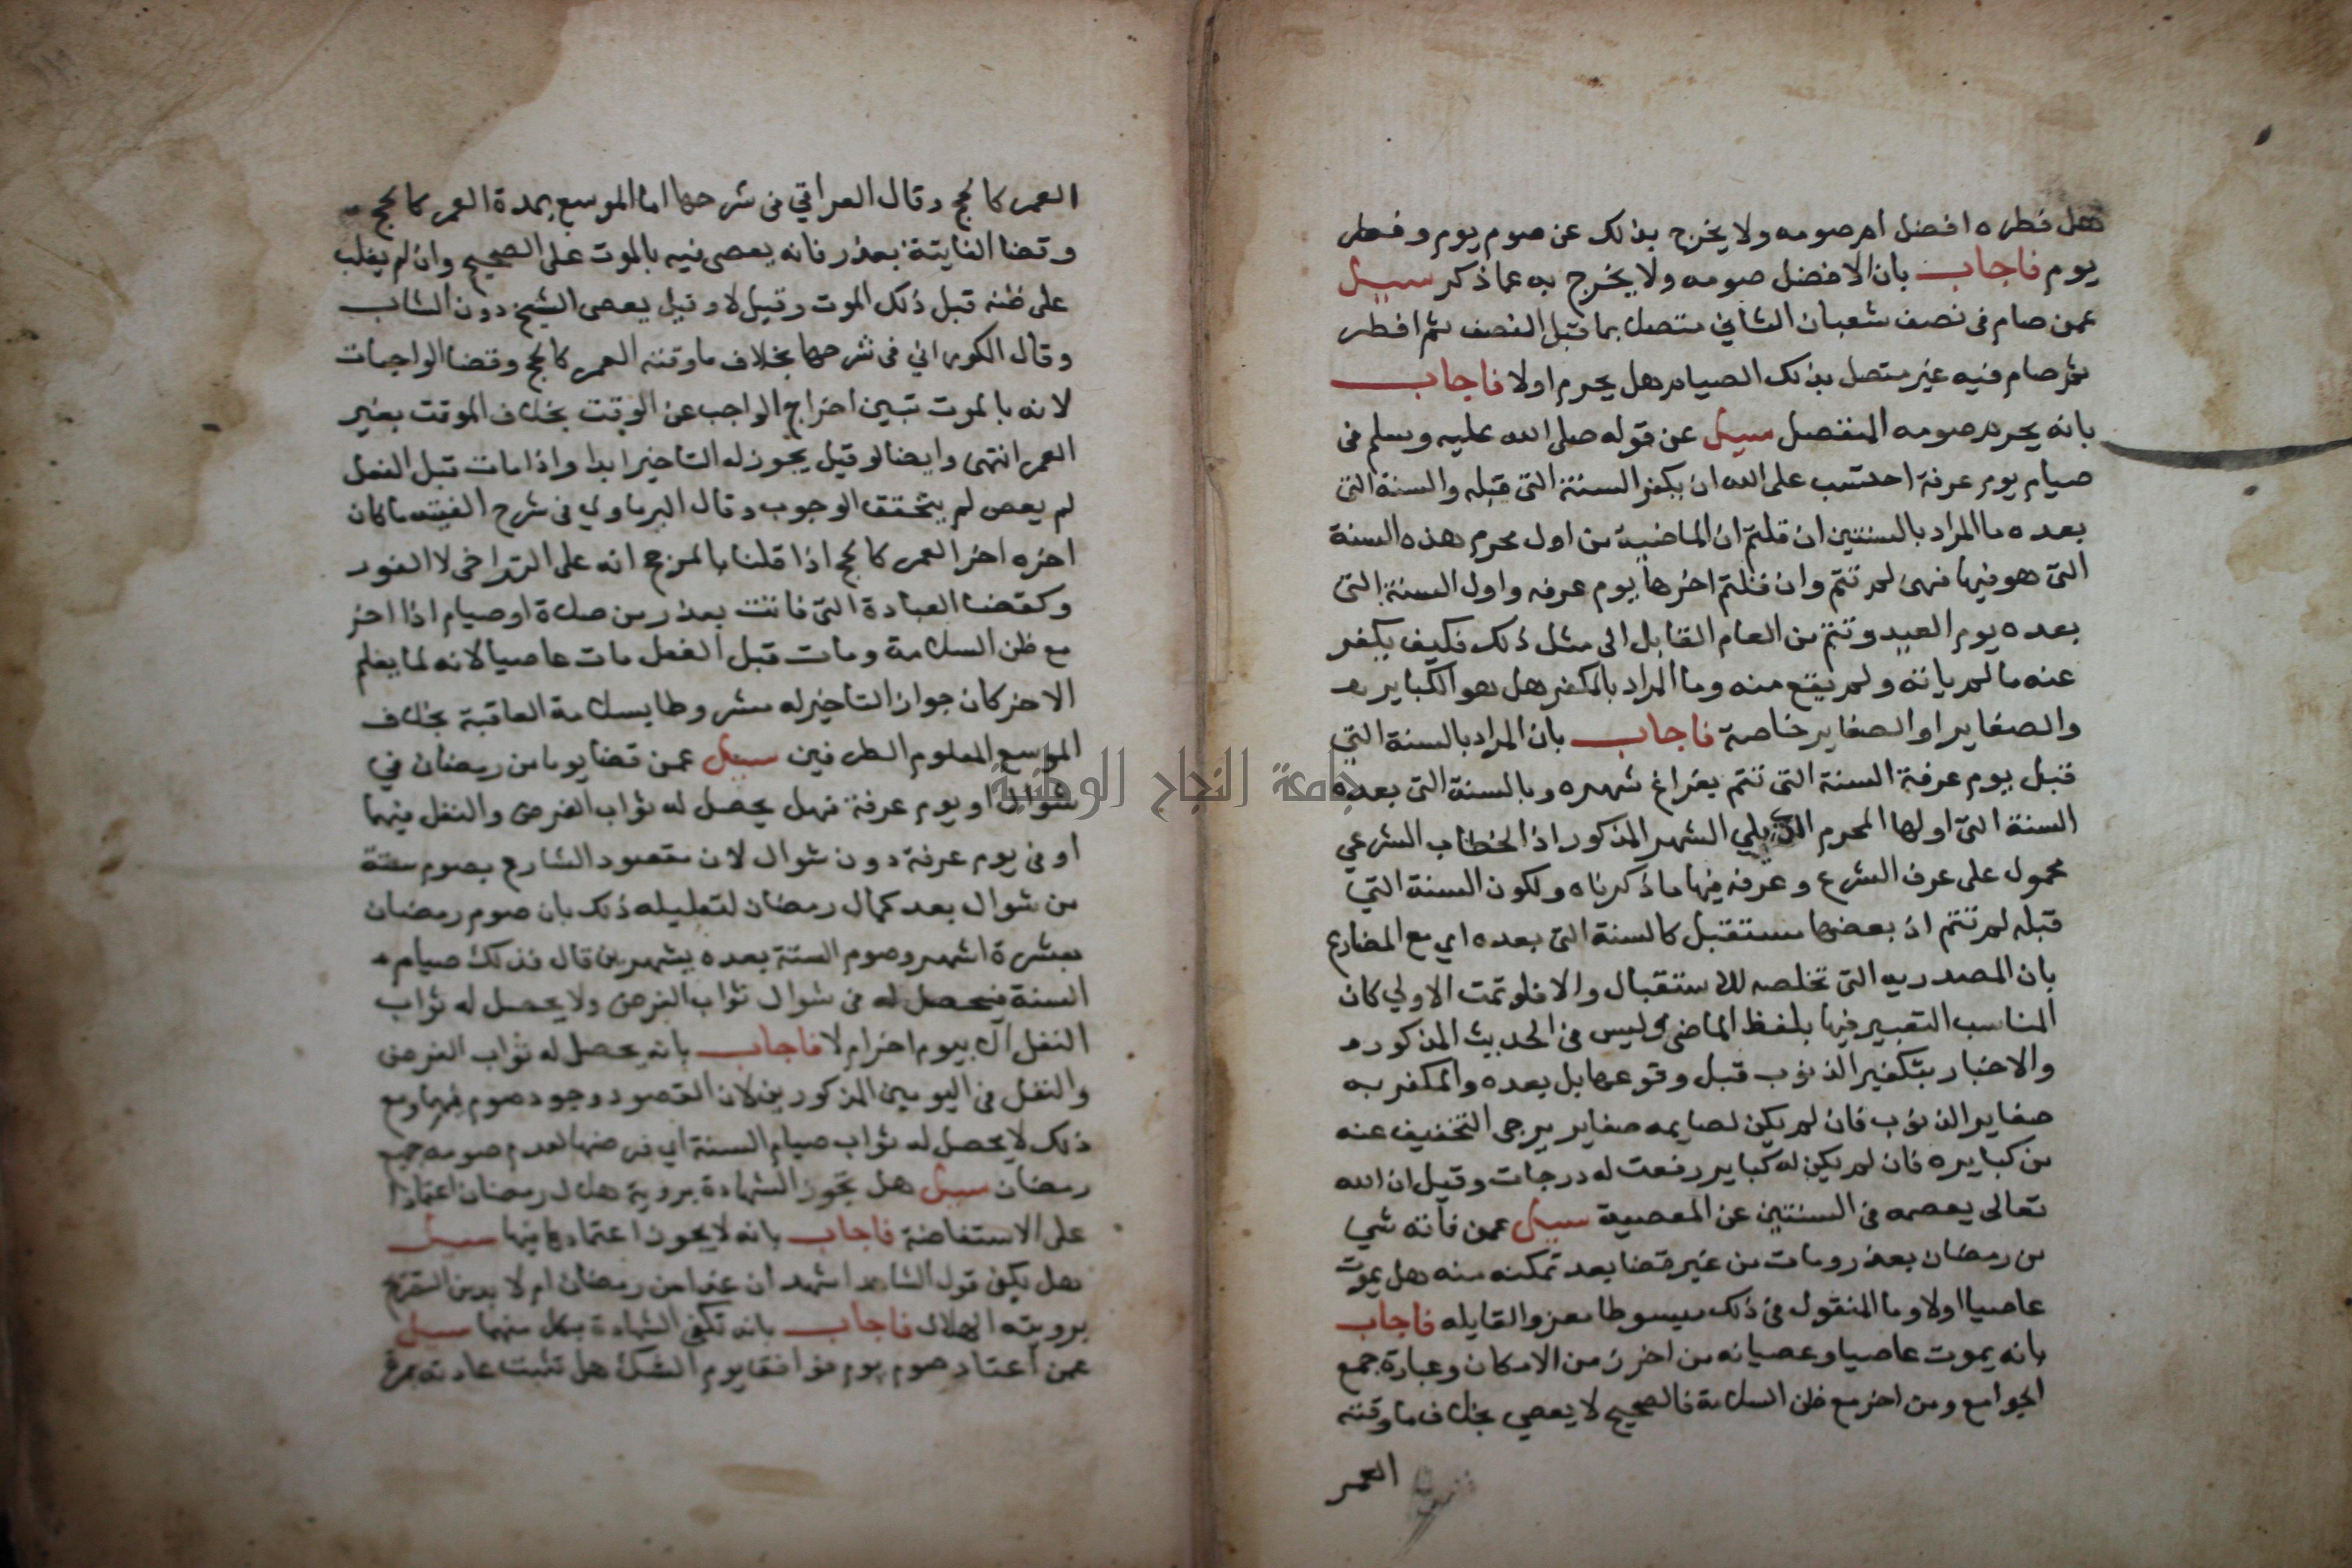 هل فطره افضل ام صومه ولا يخرج بذلك عن صوم يوم وفطر
يوم فاجاب بان الافضل صومه ولا يخرج به عما ذكر سيل
عمن صام في نصف شعبان الثاني متصلا بما قبل النصف ثم افطر
ثم صام فيه غير متصل بذلك الصيام هل يحرم اولا فاجاب
بانه يحرم صومه المنفصل سيل عن قوله صلى الله عليه وسلم في
صيام يوم عرفة احتسب على الله ان يكفر السنة التي قبله والسنة التي
بعده ما المراد بالسنتين ان قلتم ان الماضية من اول محرم هذه السنة
التي هو فيها فهي لم تتم وان قلتم اخرها يوم عرفه واول السنة التي
بعده يوم العيد وتتم من العام القابل الى مثل ذلك فكيف يكفر
عنه ما لم ياته ولم يقع منه وما المراد بالمكفر هل هو الكباير
والصغاير او الصغاير خاصة فاجاب بان المراد بالسنة التي
قبل يوم عرفة السنة التي تتم بفراغ شهره وبالسنة التي بعده
السنة التي اولها المحرم الذي يلي الشهر المذكور اذ الخطاب الشرعي
محمول على عرف الشرع وعرفه فيها ما ذكرناه ولكون السنة التي
قبله لم تتم اذ بعضها مستقبل كالسنة التي بعده اي مع المضارع
بان المصدريه التي تخلصه للاستقبال والا فلو تمت الاولي كان
المناسب التعبير فيها بلفظ الماضي وليس في الحديث المذكور
والاخبار بتكفير الذنوب قبل وقوعها بل بعده والمكفر به
صغاير الذنوب فان لم يكن لصايمه صغاير يرجى التخفيف عنه
من كبايره فان لم يكن له كباير رفعت له درجات وقيل ان الله
تعالى يعصمه في السنتين عن المعصية سيل عمن فاته شي
من رمضان بعذر ومات من غير قضا بعد تمكنه منه هل يموت
عاصيا اولا وما المنقول في ذلك مبسوطا معزوا لقايله فاجاب
بانه يموت عاصيا وعصيانه من اخر زمن الامكان وعبارة جمع
الجوامع ومن اخر مع ظن السلامة فالصحيح لا يعصي بخلاف ما وقته
العمر
العمر كالحج وقال العراقي في شرحها اما الموسع بمدة العمر كالحج
وقضا الفايتة بعذر فانه يعصى فيه بالموت على الصحيح وان لم يغلب
على ظنه قبل ذلك الموت وقيل لا وقيل يعصى الشيخ دون الشاب
وقال الكوراني في شرحها بخلاف ما وقته العمر كالحج وقضا الواجبات
لانه بالموت تبين اخراج الواجب عن الوقت بخلاف الموقت بغير
العمر انتهى وايضا لو قيل يجوز له التاخير ابدا واذا مات قبل الفعل
لم يعص لم يتحقق الوجوب وقال البرماوي في شرح الفيته ما كان
اخره اخر العمر كالحج اذا قلنا بالمرجح انه على التراخي لا الفور
وكقضا العبادة التي فاتت بعذر من صلاة او صيام اذا اخر
مع ظن السلامة ومات قبل الفعل مات عاصيا لانه لما يعلم
الاخر كان جواز التاخير له مشروطا بسلامة العاقبة بخلاف
الموسع المعلوم الطرفين سيل عمن قضا يوما من رمضان في
شوال او يوم عرفة فهل يحصل له ثواب الفرض والنفل فيهما
او في يوم عرفة دون شوال لان مقصود الشارع بصوم ستة
من شوال بعد كمال رمضان لتعليله ذلك بان صوم رمضان
بعشرة اشهر وصوم الستة بعده بشهرين قال فذلك صيام
السنة فيحصل له في شوال ثواب الفرض ولا يحصل له ثواب
النفل الا بيوم اخر ام لا فاجاب بانه يحصل له ثواب الفرض
والنفل في اليومين المذكورين لان القصود وجود صوم فيهما ومع
ذلك لا يحصل له ثواب صيام السنة اي فرضها لعدم صومه جميع
رمضان سيل هل تجوز الشهادة بروية هلال رمضان اعتمادا
على الاستفاضة فاجاب بانه لا يجوز اعتمادها فيها سيل
هل يكفي قول الشاهد اشهد ان غدا من رمضان ام لا بد من التصريح
برويته الهلال فاجاب بانه تكفي الشهادة بكل منهما سيل
عمن اعتاد صوم يوم فوافق يوم الشك هل تثبت عادته بمرة
جامعة النجاح الوطنية